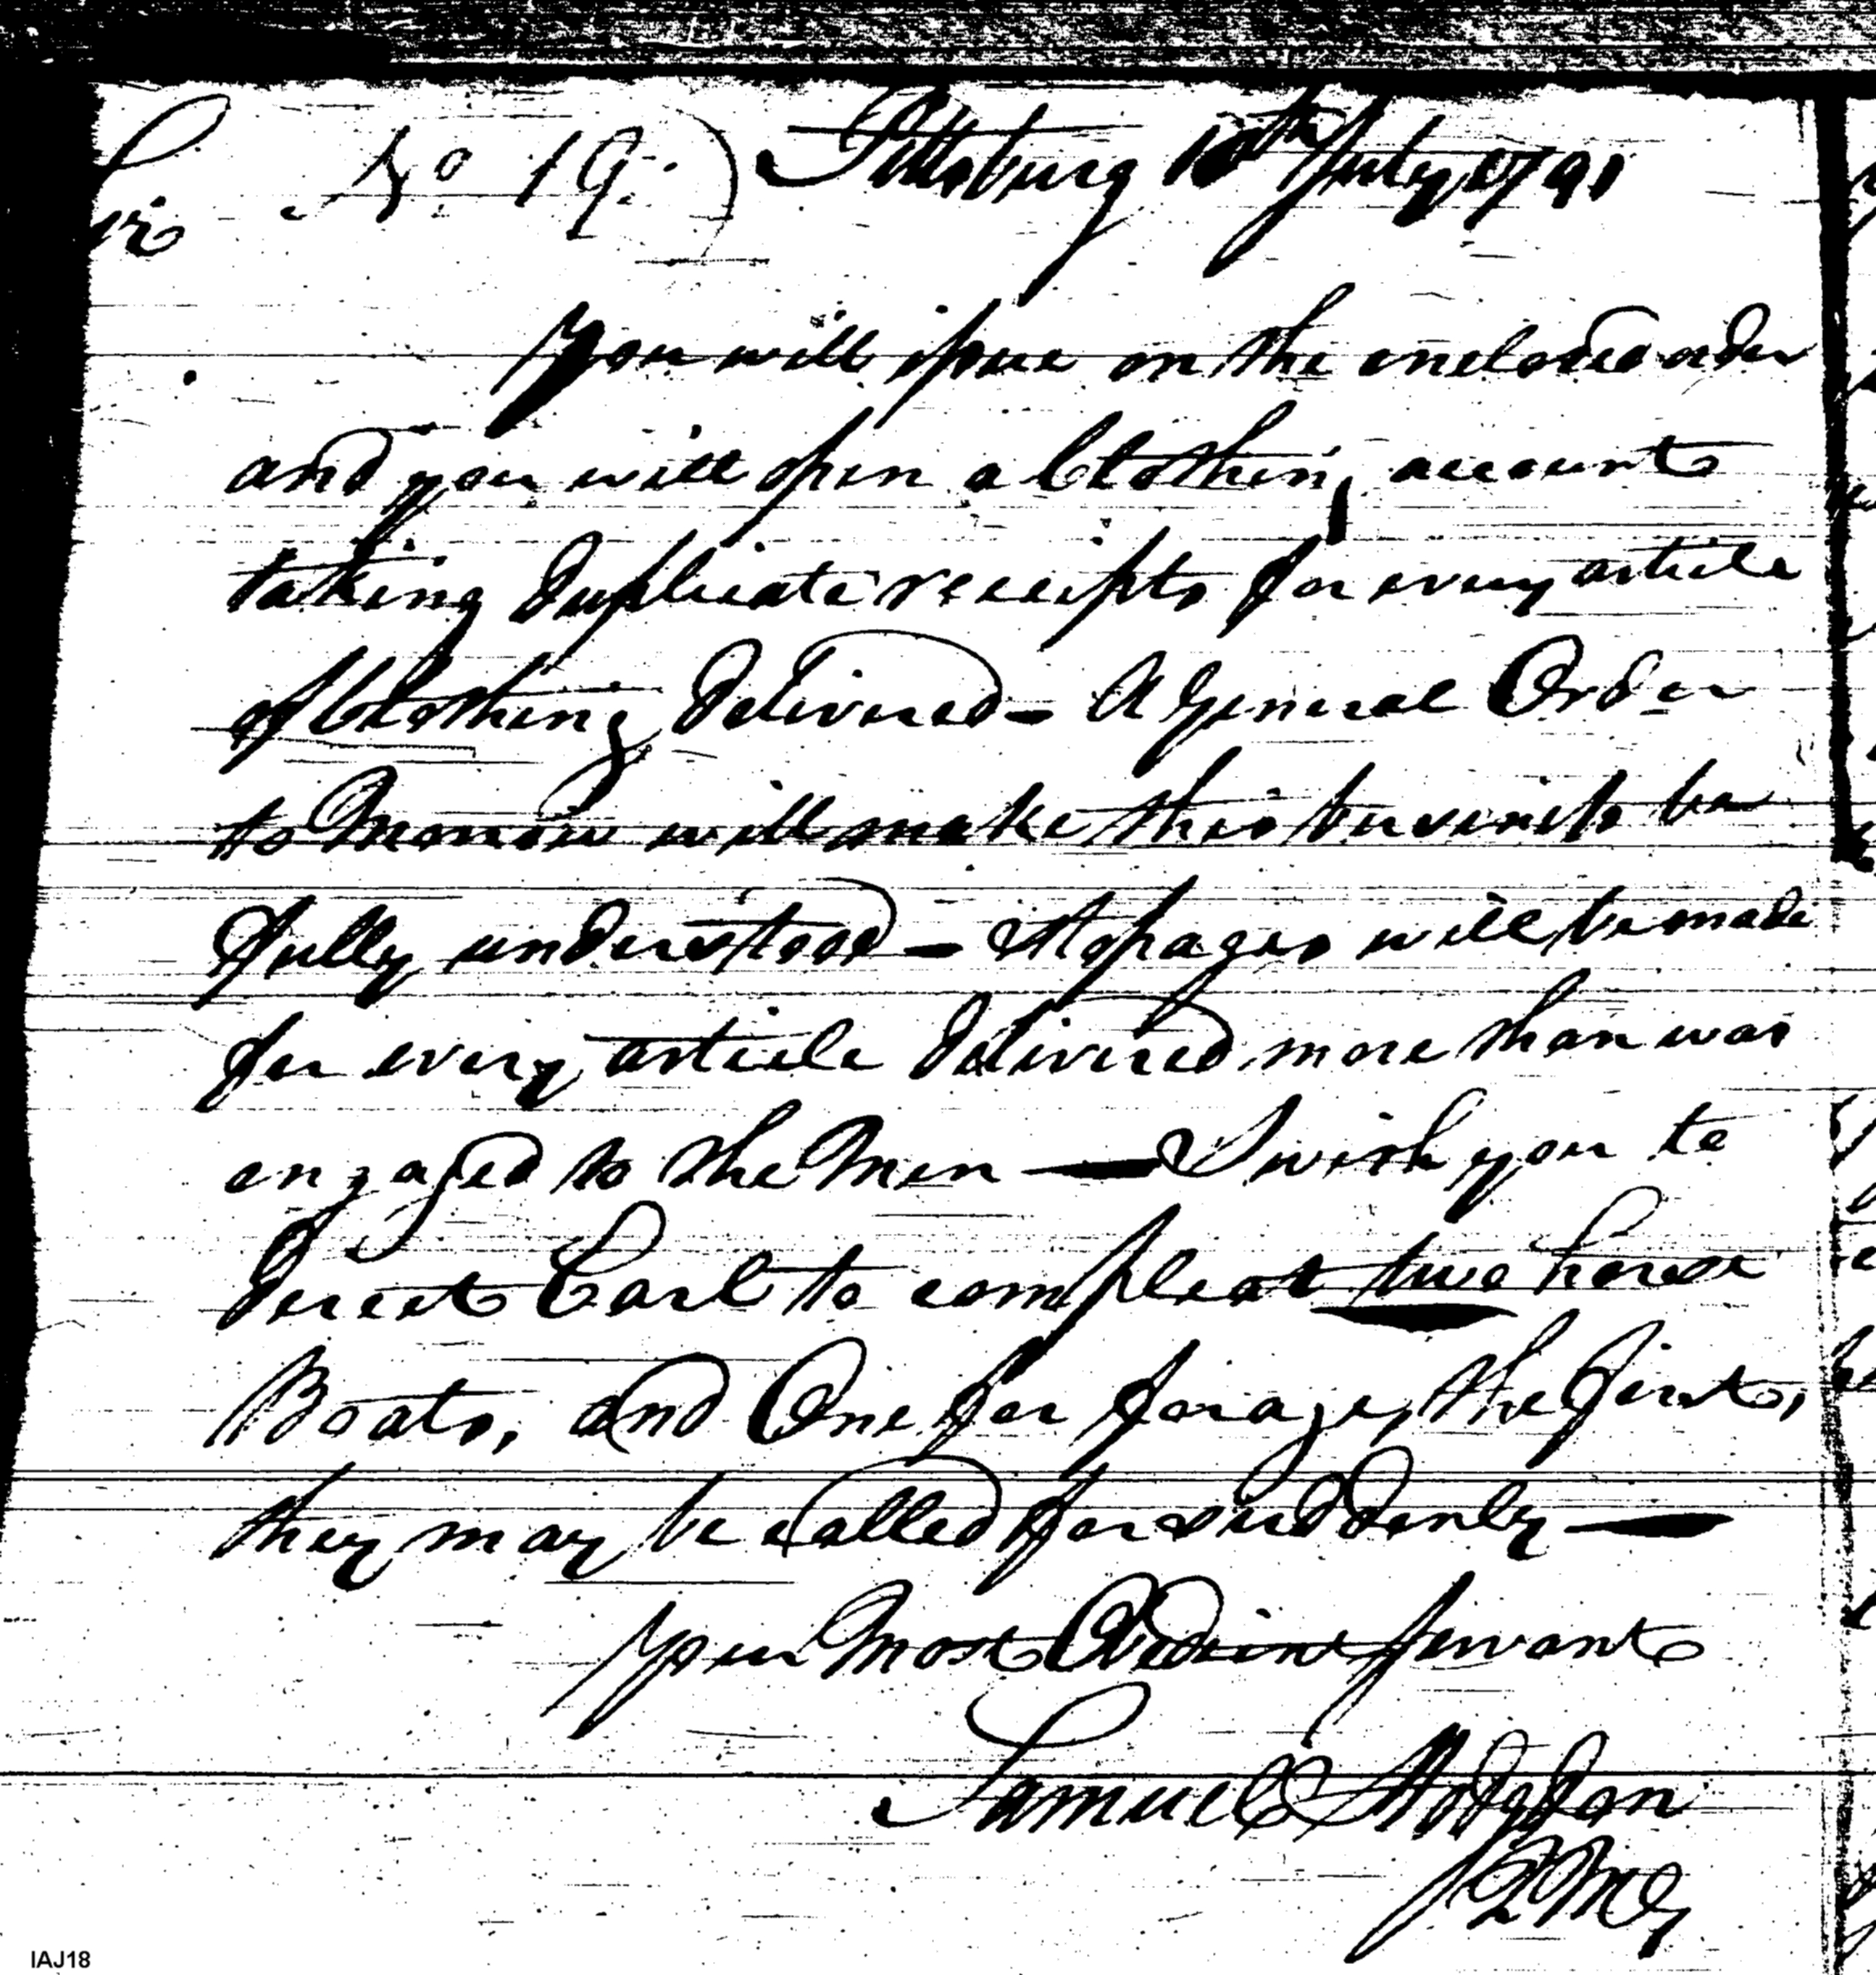 Sir No 19.) Pittsburg 10th July 1791
You will issue on the enclosed order
and you will open a Clothing account
taking duplicate receipts for every article
of Clothing delivered - A General Order
to Morrow will make this business be
fully understood - Stopages will be made
for every article delivered more than was
engaged to the Men — I wish you to
direct Earl to compleat two horse
Boats, and One for forage, the first,
they may be called for suddenly —
Your Most Obedient Servant
Samuel Hodgdon
QMG
IAJ18